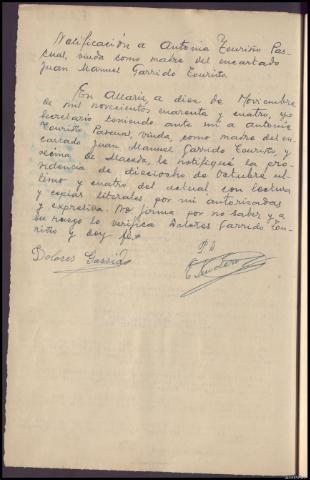 Notificación a Antonia Touriño Pas-
cual, viuda como madre del encartado
Juan Manuel Garrido Touriño.
En Allariz a diez de Noviembre
de mil novecientos cuarenta y cuatro, yo
Secretario teniendo ante mi a Antonia
Touriño Pascual, viuda, como madre del en-
cartado Juan Manuel Garrido Touriño, y
vecina de Maceda, le notifiqué la pro-
videncia de dieciocho de Octubre úl-
timo y cuatro del actual con lectura
y copias literales por mi autorizadas
y expresiva. No firma por no saber y a
su ruego lo verifica Dolores Garrido Tou-
riño y doy fe=
Dolores Garrido